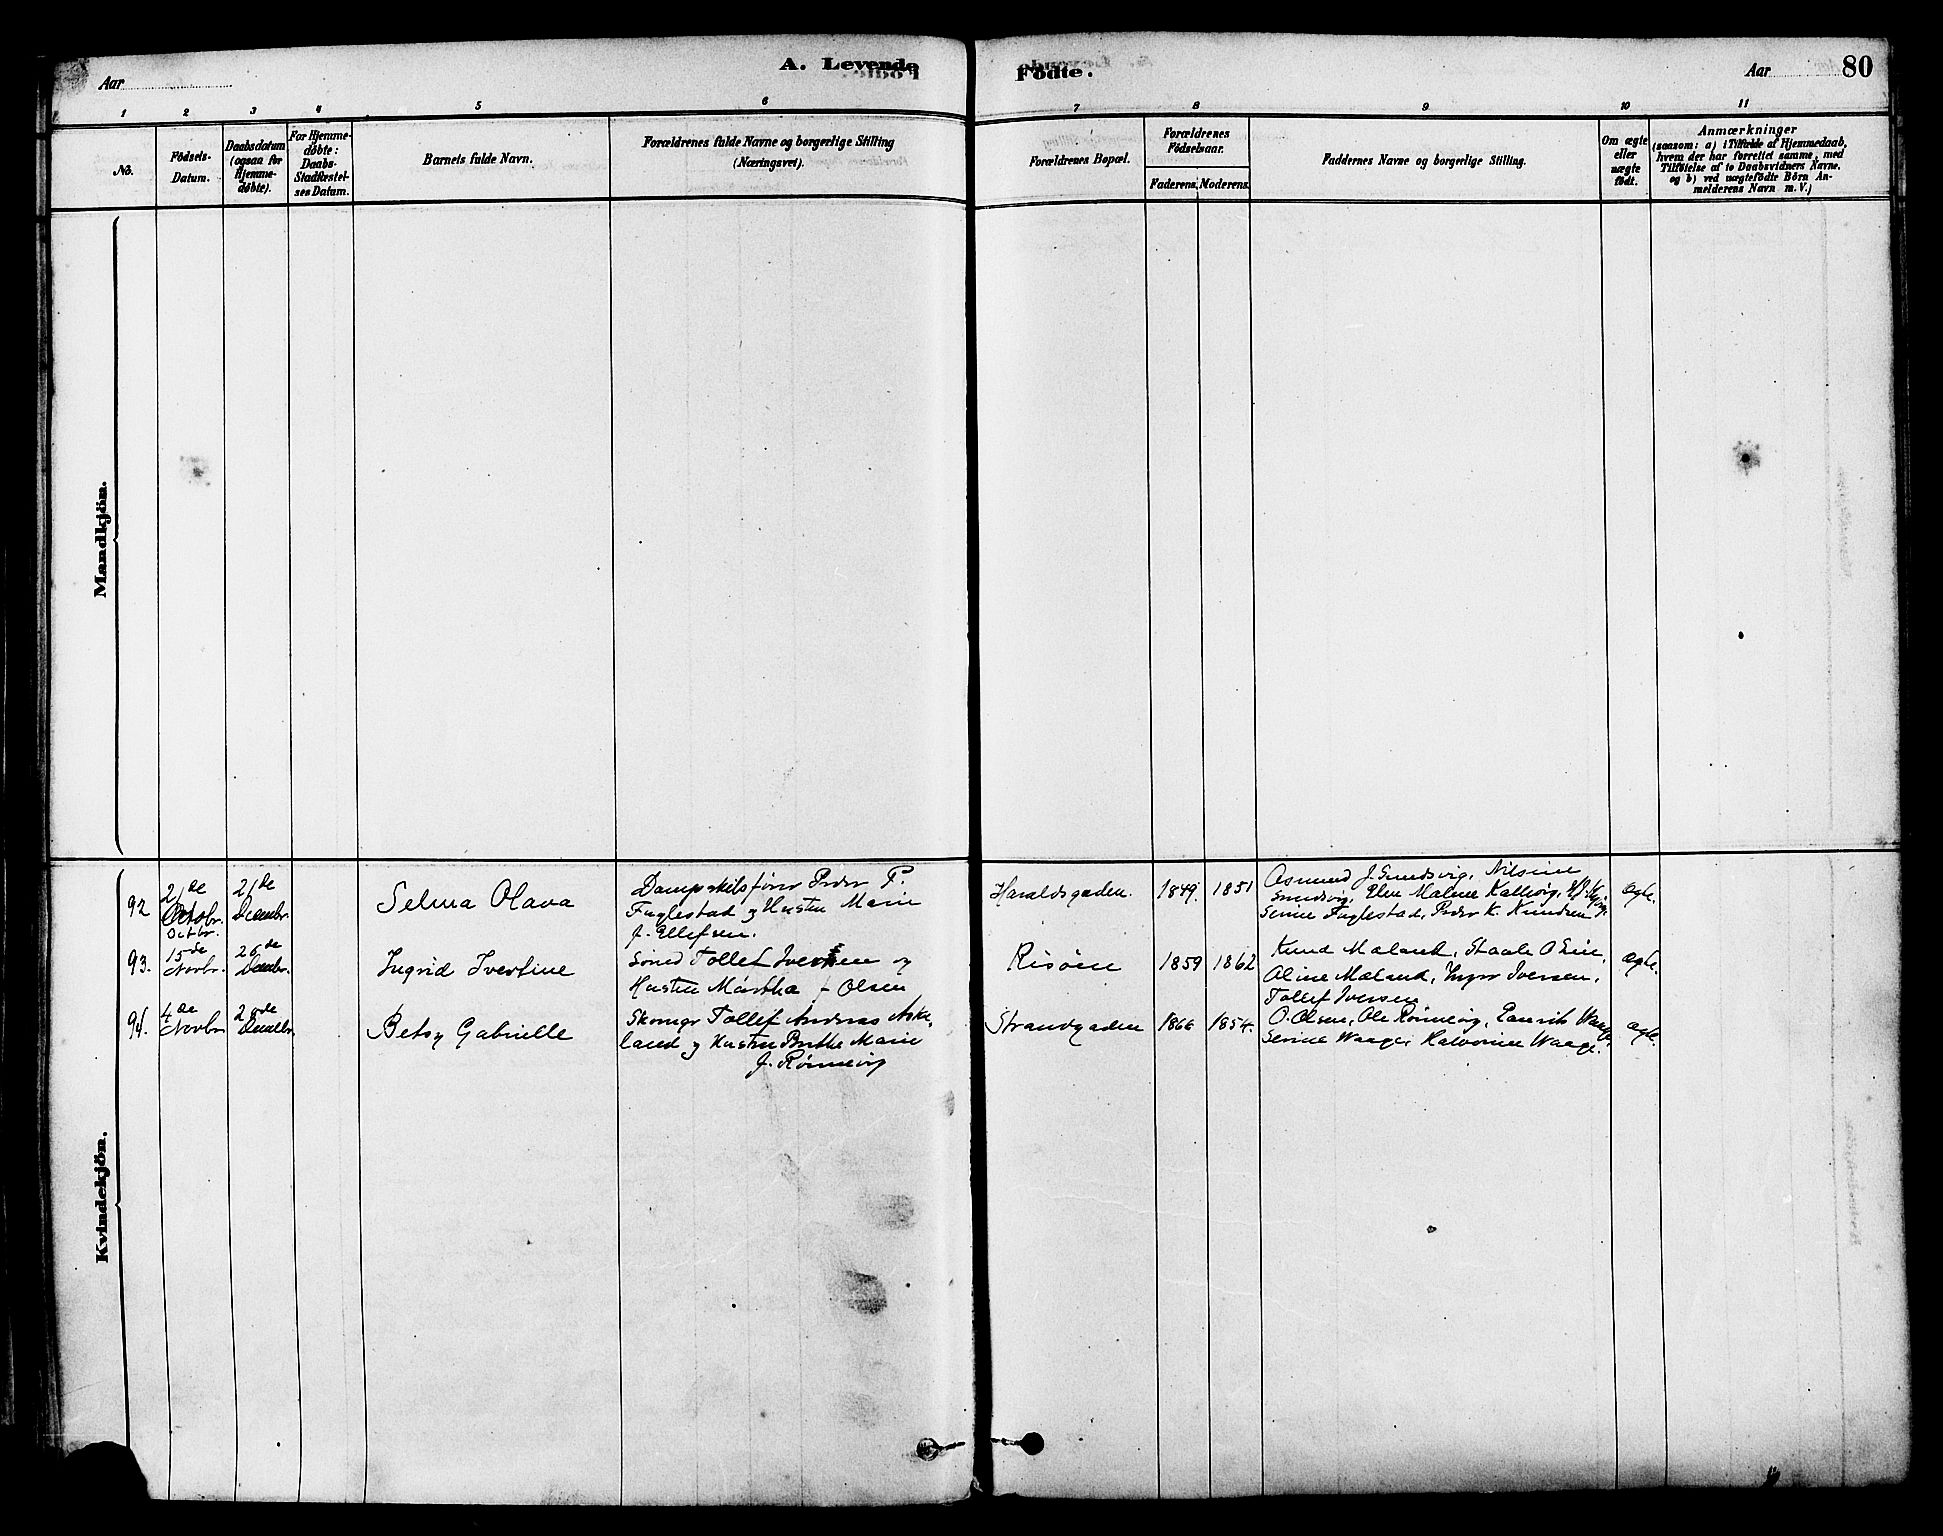 Aar
A. Levende
Fødte.
Aar
80
1 2 3 4 5 6 7 8 9 10 11
No.
Fødsels-
Datum.
Daabsdatum
(ogsaa for
Hjemme-
døbte).
For Hjemme-
døbte:
Daabs-
Stadfæstel-
ses Datum.
Barnets fulde Navn.
Forældrenes fulde Navne og borgerlige Stilling
(Næringsvei).
Forældrenes Bopæl.
Forældrenes
Fødselsaar.
Faderens. Moderens.
Faddernes Navne og borgerlige Stilling.
Om ægte
eller
uægte
født.
Anmærkninger
(saasom: a) i Tilfælde af Hjemmedaab,
hvem der har forrettet samme, med
Tilføielse af to Daabsvidners Navne,
og b) ved uægtefødte Børn An-
melderens Navn m. V.)
Mandkjön.
Kvindekjön.
92
21de
Octobr.
Octbr.
21de
Decembr.
Selma Olava
Dampskibsfører Peder P.
Fuglestad og Hustru Marie
J. Ellefsen.
Haraldsgaden.
1849.
1851
Asmund J. Smedsvig, Nilsine
Smedsvig, Elen Malene Kallevig,
Serine Fuglestad, Peder K. Knudsen
ægte.
93.
15de
Novbr.
26de
Decbr.
Ingrid Ivertine
Smed Tollef Iversen og
Hustru Martha f. Olsen
Risøen
1859
1862
Knud Maland, Staale
Oline Maland, Inger Iversen,
Tollef Iversen
ægte.
94.
4de
Novbr
Betsy Gabrielle
Skomgr Tollef Andreas Aske-
land og Hustru Berthe Marie
J. Rønnevig
Strandgaden
1866
1854.
O. Olsen, Ole Rønnevig, Henrik Waage
Serine Waage, Halvorine Waage.
ægte.